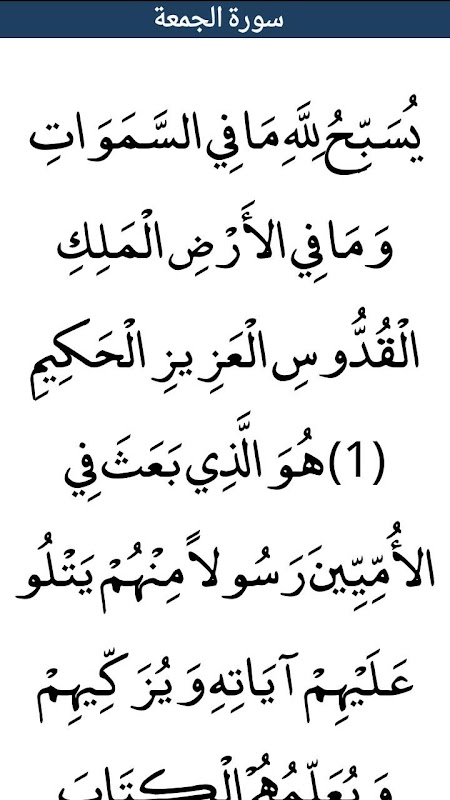 سورة الجمعة
يُسَبِّحُ لِلَّهِ مَا فِي السَّمَوَاتِ
وَمَا فِي الأَرْضِ الْمَلِكِ
الْقُدُّوسِ الْعَزِيزِ الْحَكِيمِ
(1) هُوَ الَّذِي بَعَثَ فِي
الأُمِّيِّينَ رَسُولاً مِنْهُمْ يَتْلُو
عَلَيْهِمْ آيَاتِهِ وَيُزَكِّيهِمْ
وَيُعَلِّمُهُمُ الْكِتَابَ